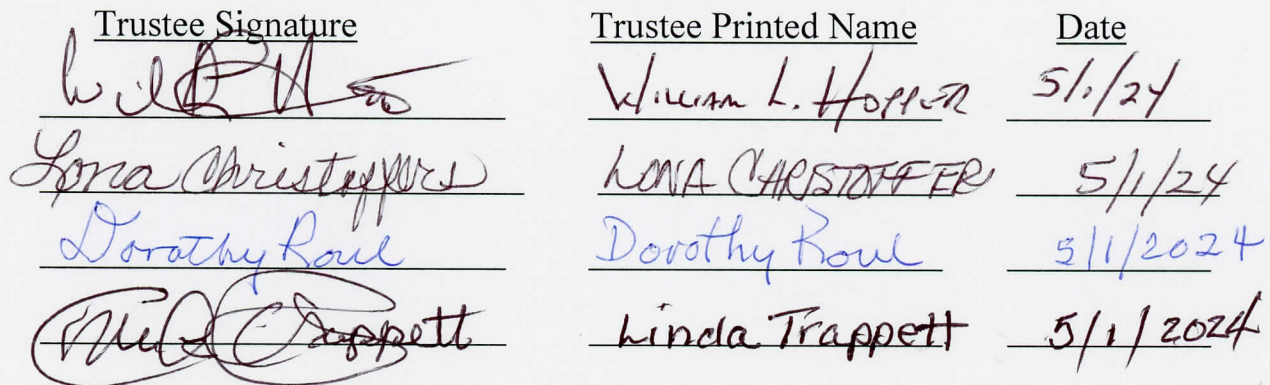 Trustee Signature Trustee Printed Name Date
William L. Hopper 5/1/24
Lona Christoffers LONA CHRISTOFFER 5/1/24
Dorothy Roul Dorothy Roul 5/1/2024
Trappett Linda Trappett 5/1/2024